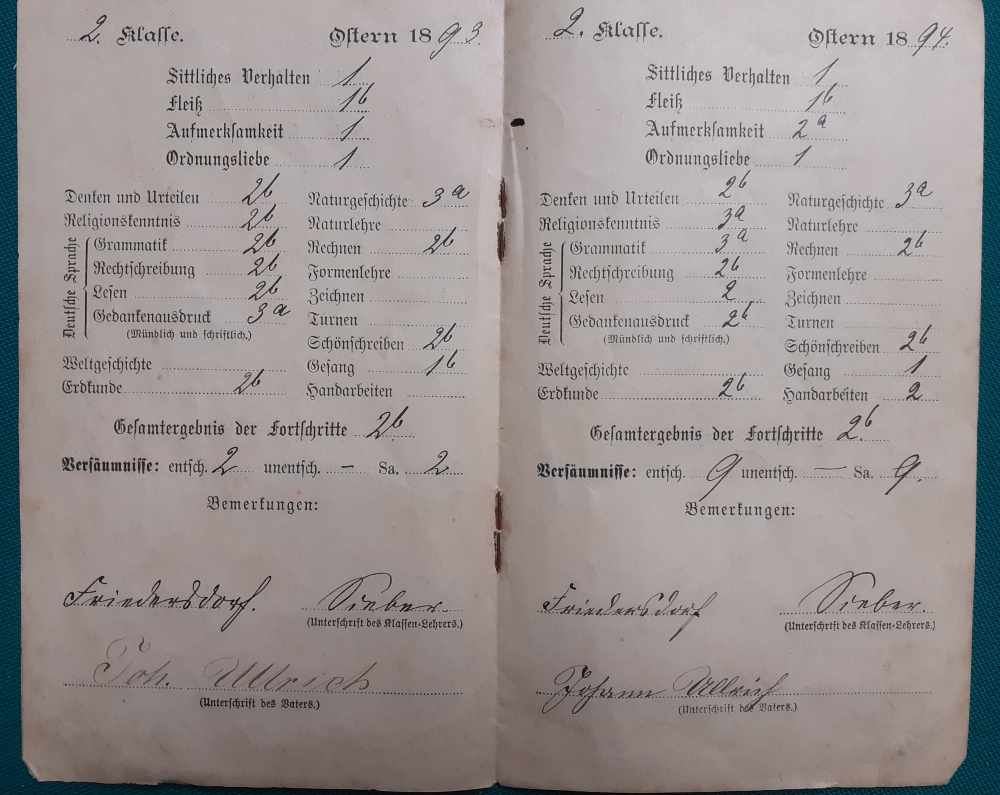 2. Klasse. Ostern 1893.
Sittliches Verhalten 1
Fleiß 1b
Aufmerksamkeit 1
Ordnungsliebe 1
Denken und Urteilen 2b
Religionskenntnis 2b
Deutsche Sprache
Grammatik 2b
Rechtschreibung 2b
Lesen 2b
Gedankenausdruck 3a
(Mündlich und schriftlich.)
Weltgeschichte
Erdkunde 2b
Naturgeschichte 3a
Naturlehre
Rechnen 2b
Formenlehre
Zeichnen
Turnen
Schönschreiben 2b
Gesang 1b
Handarbeiten
Gesamtergebnis der Fortschritte 2b
Versäumnisse: entsch. 2 unentsch. – Sa. 2
Bemerkungen:
Friedersdorf. Sieber.
(Unterschrift des Klassen-Lehrers.)
Joh. Ullrich
(Unterschrift des Vaters.)
2. Klasse. Ostern 1894.
Sittliches Verhalten 1
Fleiß 1b
Aufmerksamkeit 2a
Ordnungsliebe 1
Denken und Urteilen 2b
Religionskenntnis 3a
Deutsche Sprache
Grammatik 3a
Rechtschreibung 2b
Lesen 2
Gedankenausdruck 2b
(Mündlich und schriftlich.)
Weltgeschichte
Erdkunde 2b
Naturgeschichte 3a
Naturlehre
Rechnen 2b
Formenlehre
Zeichnen
Turnen
Schönschreiben 2b
Gesang 1
Handarbeiten 2
Gesamtergebnis der Fortschritte 2b
Versäumnisse: entsch. 9 unentsch. — Sa. 9.
Bemerkungen:
Friedersdorf Sieber.
(Unterschrift des Klassen-Lehrers.)
Johann Ullrich
(Unterschrift des Vaters.)